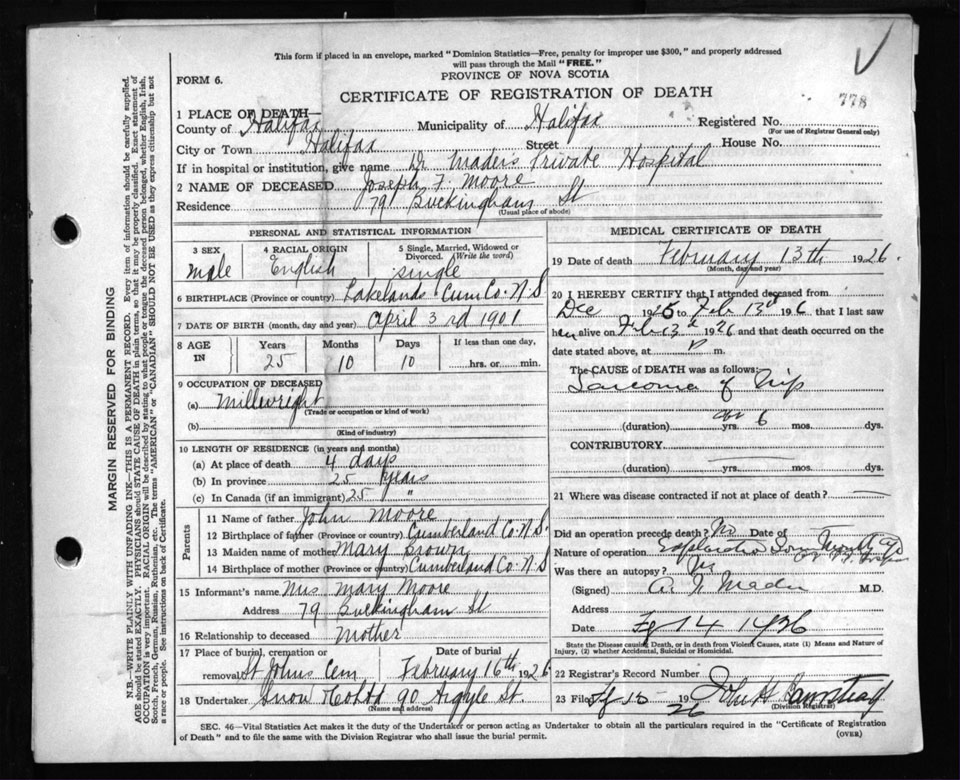 This form if placed in an envelope, marked "Dominion Statistics—Free, penalty for improper use $300," and properly addressed
will pass through the Mail "FREE."
FORM 6.
PROVINCE OF NOVA SCOTIA
CERTIFICATE OF REGISTRATION OF DEATH
778
1 PLACE OF DEATH—
County of Halifax Municipality of Halifax Registered No.
(For use of Registrar General only)
City or Town Halifax Street House No.
If in hospital or institution, give name Dr Mader's Private Hospital
2 NAME OF DECEASED Joseph F. Moore
Residence 79 Buckingham St
(Usual place of abode)
PERSONAL AND STATISTICAL INFORMATION
3 SEX 4 RACIAL ORIGIN 5 Single, Married, Widowed or Divorced. (Write the word)
male English single
6 BIRTHPLACE (Province or country) Lakelands Cum Co. N.S
7 DATE OF BIRTH (month, day and year) April 3rd 1901
8 AGE IN Years Months Days If less than one day,
25 10 10 hrs. or min.
9 OCCUPATION OF DECEASED
(a) Millwright
(Trade or occupation or kind of work)
(b)
(Kind of industry)
10 LENGTH OF RESIDENCE (in years and months)
(a) At place of death 4 days
(b) In province 25 years
(c) In Canada (if an immigrant) 25 "
Parents
11 Name of father John Moore
12 Birthplace of father (Province or country) Cumberland Co. N.S.
13 Maiden name of mother Mary Brown
14 Birthplace of mother (Province or country) Cumberland Co N.S
15 Informant's name Mrs Mary Moore
Address 79 Buckingham St
16 Relationship to deceased Mother
17 Place of burial, cremation or removal Date of burial
St Johns Cem February 16th 1926
18 Undertaker Snow & Co Ltd 90 Argyle St.
(Name and address)
MEDICAL CERTIFICATE OF DEATH
19 Date of death February 13th 1926.
(Month, day and year)
20 I HEREBY CERTIFY that I attended deceased from
Dec to Feb 13th 1926, that I last saw
him alive on Feb 13th 1926 and that death occurred on
date stated above, at P m.
The CAUSE OF DEATH was as follows:
Sarcoma of Hip
(duration) yrs. 6 mos. dys.
CONTRIBUTORY
(duration) yrs. mos. dys.
21 Where was disease contracted if not at place of death?
Did an operation precede death? No Date of
Nature of operation
Was there an autopsy? No
(Signed) M.D.
Address
Date Feb 14 1926
State the Disease causing Death, or in death from Violent Causes, state (1) Means and Nature of
Injury, (2) whether Accidental, Suicidal or Homicidal.
22 Registrar's Record Number
23 Filed 15 1926
(Division Registrar)
SEC. 46—Vital Statistics Act makes it the duty of the Undertaker or person acting as Undertaker to obtain all the particulars required in the "Certificate of Registration
of Death" and to file the same with the Division Registrar who shall issue the burial permit.
(OVER)
MARGIN RESERVED FOR BINDING
N.B.—WRITE PLAINLY WITH UNFADING INK—THIS IS A PERMANENT RECORD. Every item of information should be carefully supplied.
AGE should be stated EXACTLY. PHYSICIANS should STATE CAUSE OF DEATH in plain terms, so that it may be properly classified. Exact statement of
OCCUPATION is very important. RACIAL ORIGIN will be described by stating to what people or tongue the deceased person belonged, whether English, Irish,
Scotch, French, German, Russian, Ruthenian, etc. The terms "AMERICAN" or "CANADIAN" SHOULD NOT BE USED as they express citizenship but not
a race or people. See instructions on back of Certificate.